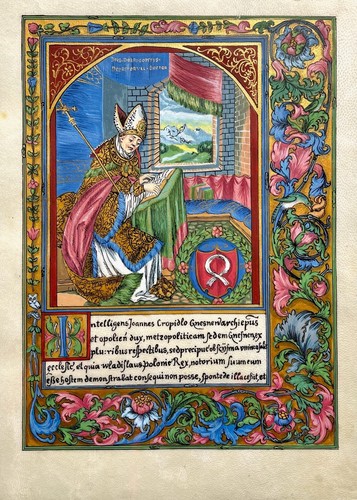 Intelligens Joannes Cropidlo Gnesneñ archiep̃us
et opolień dux, metropoliticam sedem Gneſneñ ex
pluribus reſpectibus, sed precipue ob
ecclesie, et quia wladislaus polonie Rex, notorium suum eum
eſſe hoſtem demonſtrabat conſequi non poſſe, ſponte de illa ceſsit, et